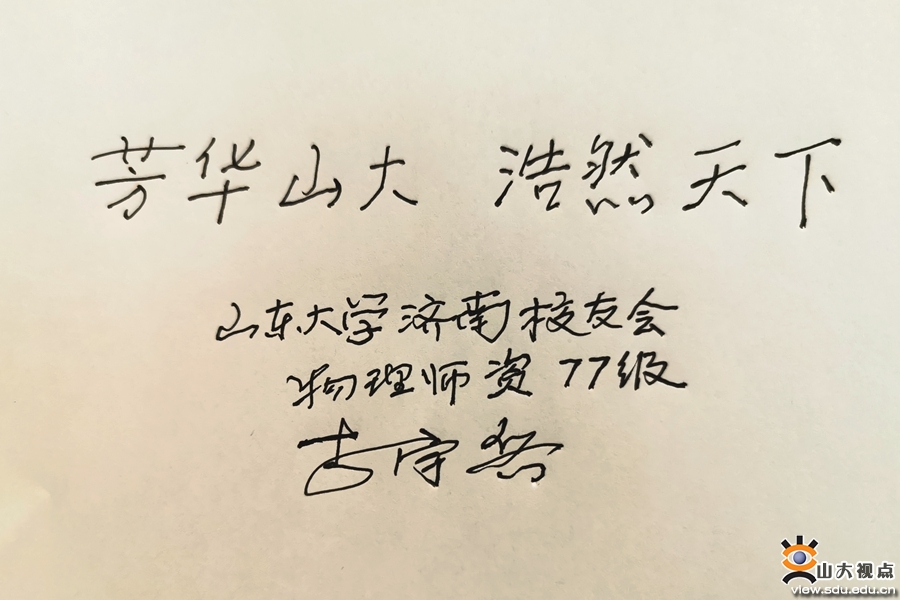 芳华山大 浩然天下
山东大学济南校友会
物理师资77级
山大视点
view.sdu.edu.cn